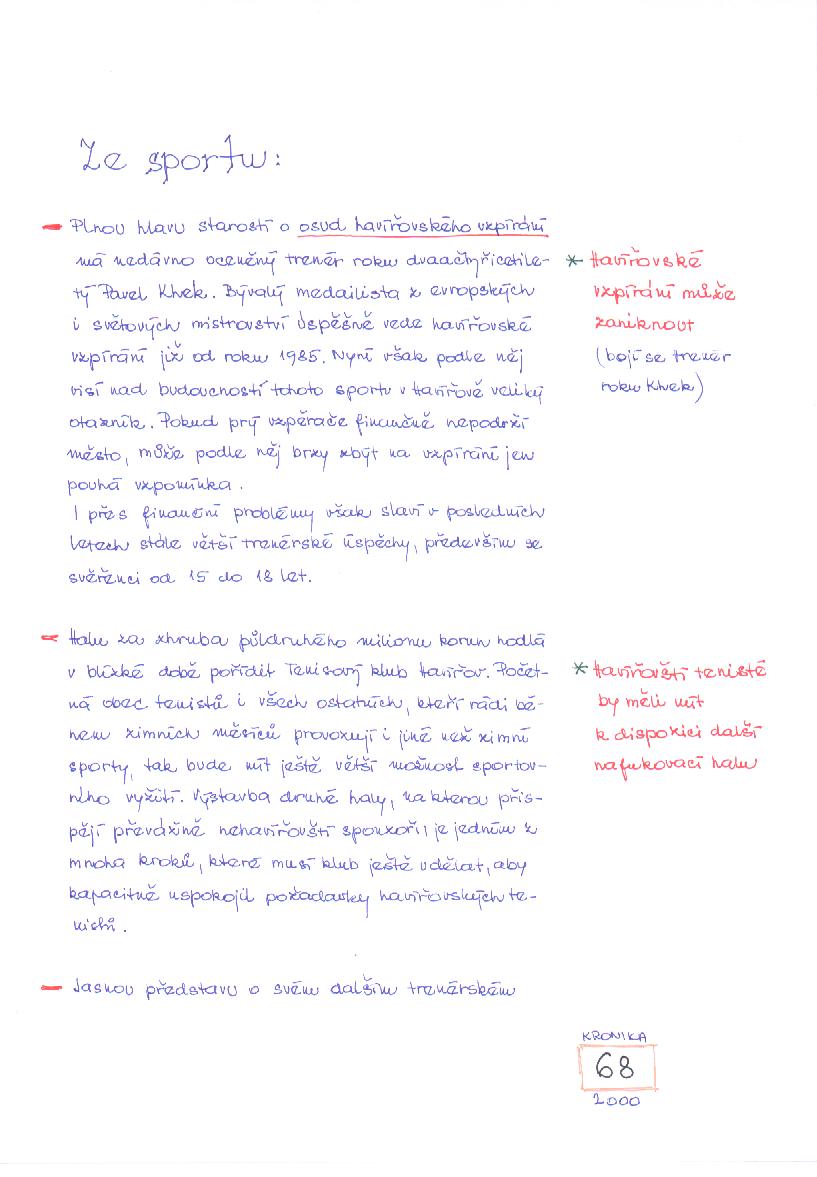 Ze sportu:
- Plnou hlavu starostí o osud havířovského vzpírání
má nedávno oceněný trenér roku dvaačtyřicetile-
tý Pavel Khek. Bývalý medailista z evropských
i světových mistrovství úspěšně vede havířovské
vzpírání již od roku 1985. Nyní však podle něj
visí nad budoucností tohoto sportu v Havířově veliký
otazník. Pokud prý vzpěrače finančně nepodrží
město, může podle něj brzy zbýt na vzpírání jen
pouhá vzpomínka.
I přes finanční problémy však slaví v posledních
letech stále větší trenérské úspěchy, především se
svěřenci od 15 do 18 let.
* Havířovské
vzpírání může
zaniknout
(bojí se trenér
roku Khek)
- Halu za zhruba půldruhého milionu korun hodlá
v blízké době pořídit Tenisový klub Havířov. Počet-
ná obec tenistů i všech ostatních, kteří rádi bě-
hem zimních měsíců provozují i jiné než zimní
sporty, tak bude mít ještě větší možnost sportov-
ního vyžití. Výstavba druhé haly, na kterou přis-
pějí převážně nehavířovští sponzoři, je jedním z
mnoha kroků, které musí klub ještě udělat, aby
kapacitně uspokojil požadavky havířovských te-
nistů.
* Havířovští tenisté
by měli mít
k dispozici další
nafukovací halu
- Jasnou představu o svém dalším trenérském
KRONIKA
68
2000